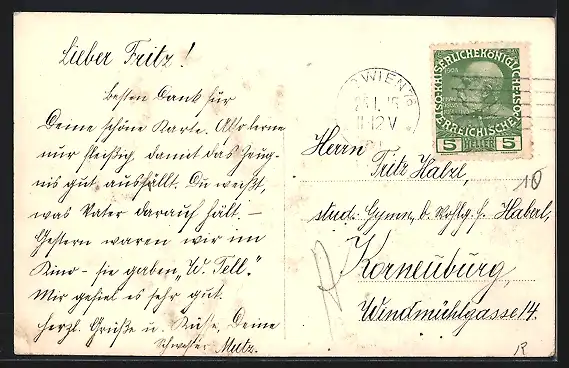 Lieber Fritz!
besten Dank für
Deine schöne Karte. Also lerne
nur fleißig, damit das Zeug-
nis gut ausfällt. Du weißt,
was Vater darauf hält. –
Gestern waren wir im
Kino – sie gaben „W. Tell".
Mir gefiel es sehr gut.
Herzl. Grüße u. Küße, Deine
Schwester Mutz.
WIEN 78
25.I.
11-12V
KAISERLICHE KÖNIGLICHE
ÖSTERREICHISCHE POST
1908
5 HELLER 5
Herrn
Fritz Haberl,
10
stud. Gymn. b. Haberl,
Korneuburg,
Windmühlgasse 14.
R